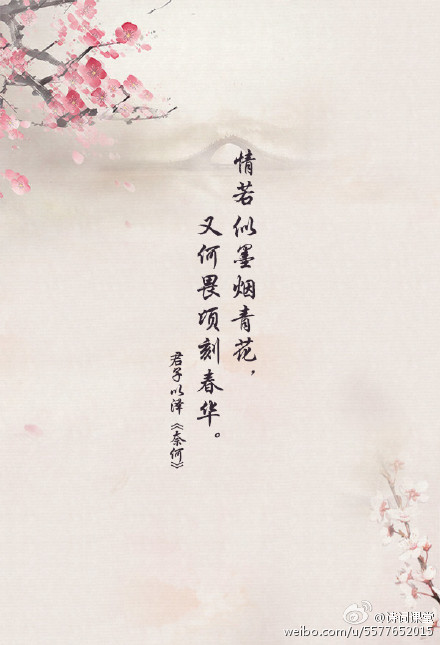 情若似墨烟青花，
又何畏顷刻春华。
君子以泽《奈何》
@诗词课堂
weibo.com/u/5577652015